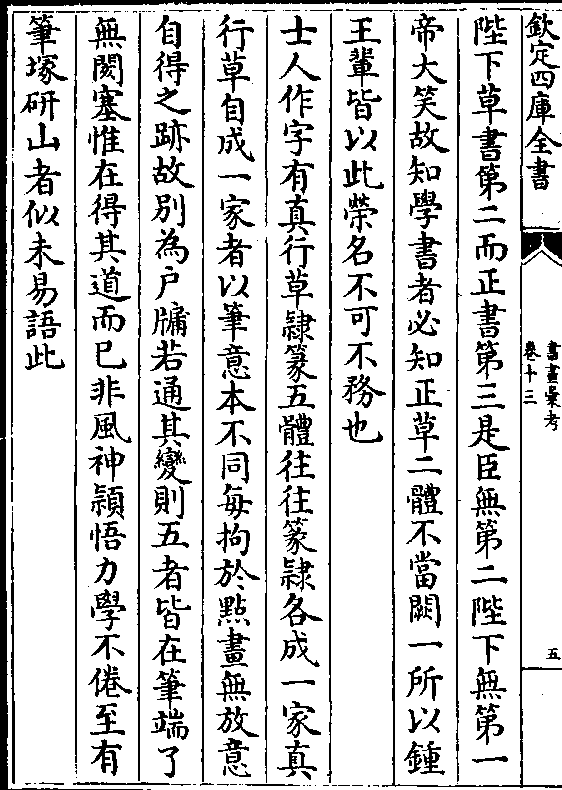 欽定四庫全書
書畫彙考
卷十三
五
陛下草書第二而正書第三是臣無第二陛下無第一
帝大笑故知學書者必知正草二體不當闕一所以鍾
王輩皆以此榮名不可不務也
士人作字有真行草隸篆五體往往篆隸各成一家真
行草自成一家者以筆意本不同每拘於點畫無放意
自得之跡故別為户牖若通其變則五者皆在筆端了
無閡塞惟在得其道而已非風神穎悟力學不倦至有
筆塚研山者似未易語此